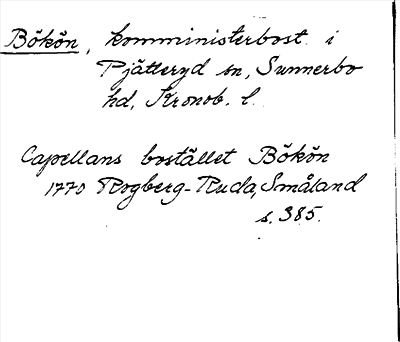 Bökön, komministerbost. i
Pjätteryd sn, Sunnerbo
hd, Kronob. l.
Capellans bostället Bökön
1770 Rogberg-Ruda, Småland
s. 385.